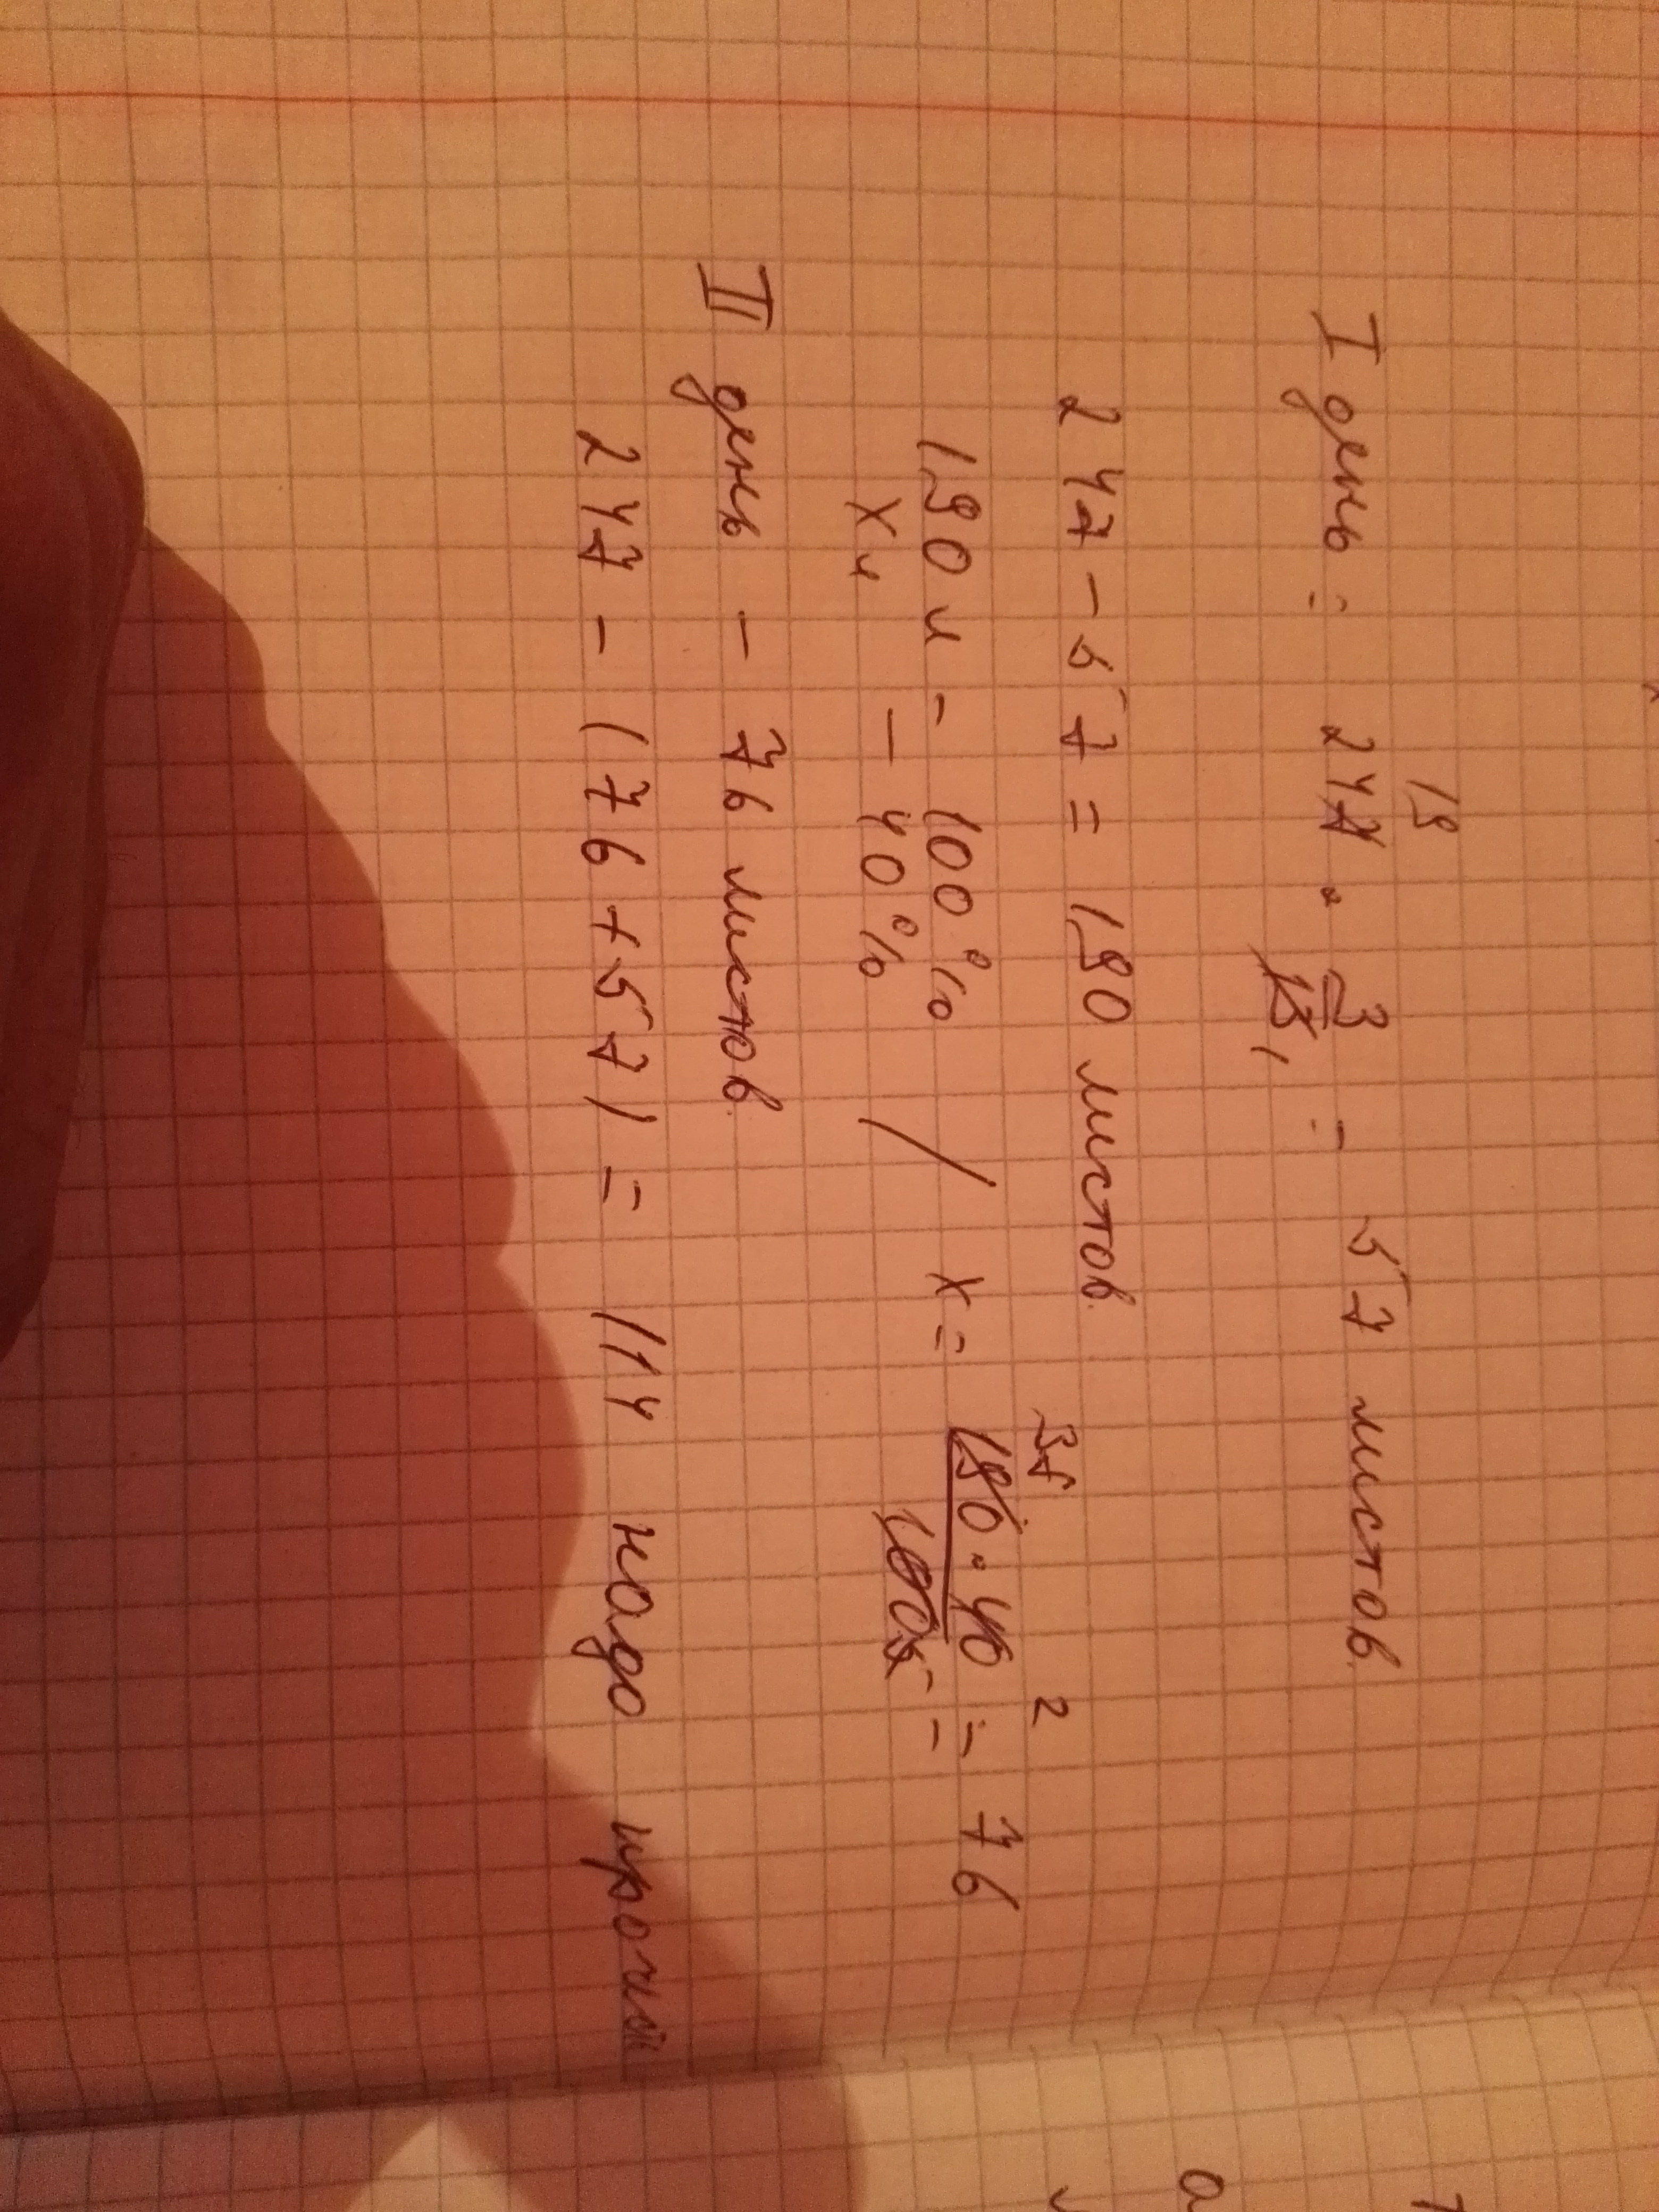 19
I день: 247 · 3/13 1 = 57 листов.
247 - 57 = 190 листов.
190 л - 100 %
x л - 40 % / x = 38 190 · 40 2 / 100 5 = 76
II день - 76 листов.
247 - (76 + 57) = 114 надо